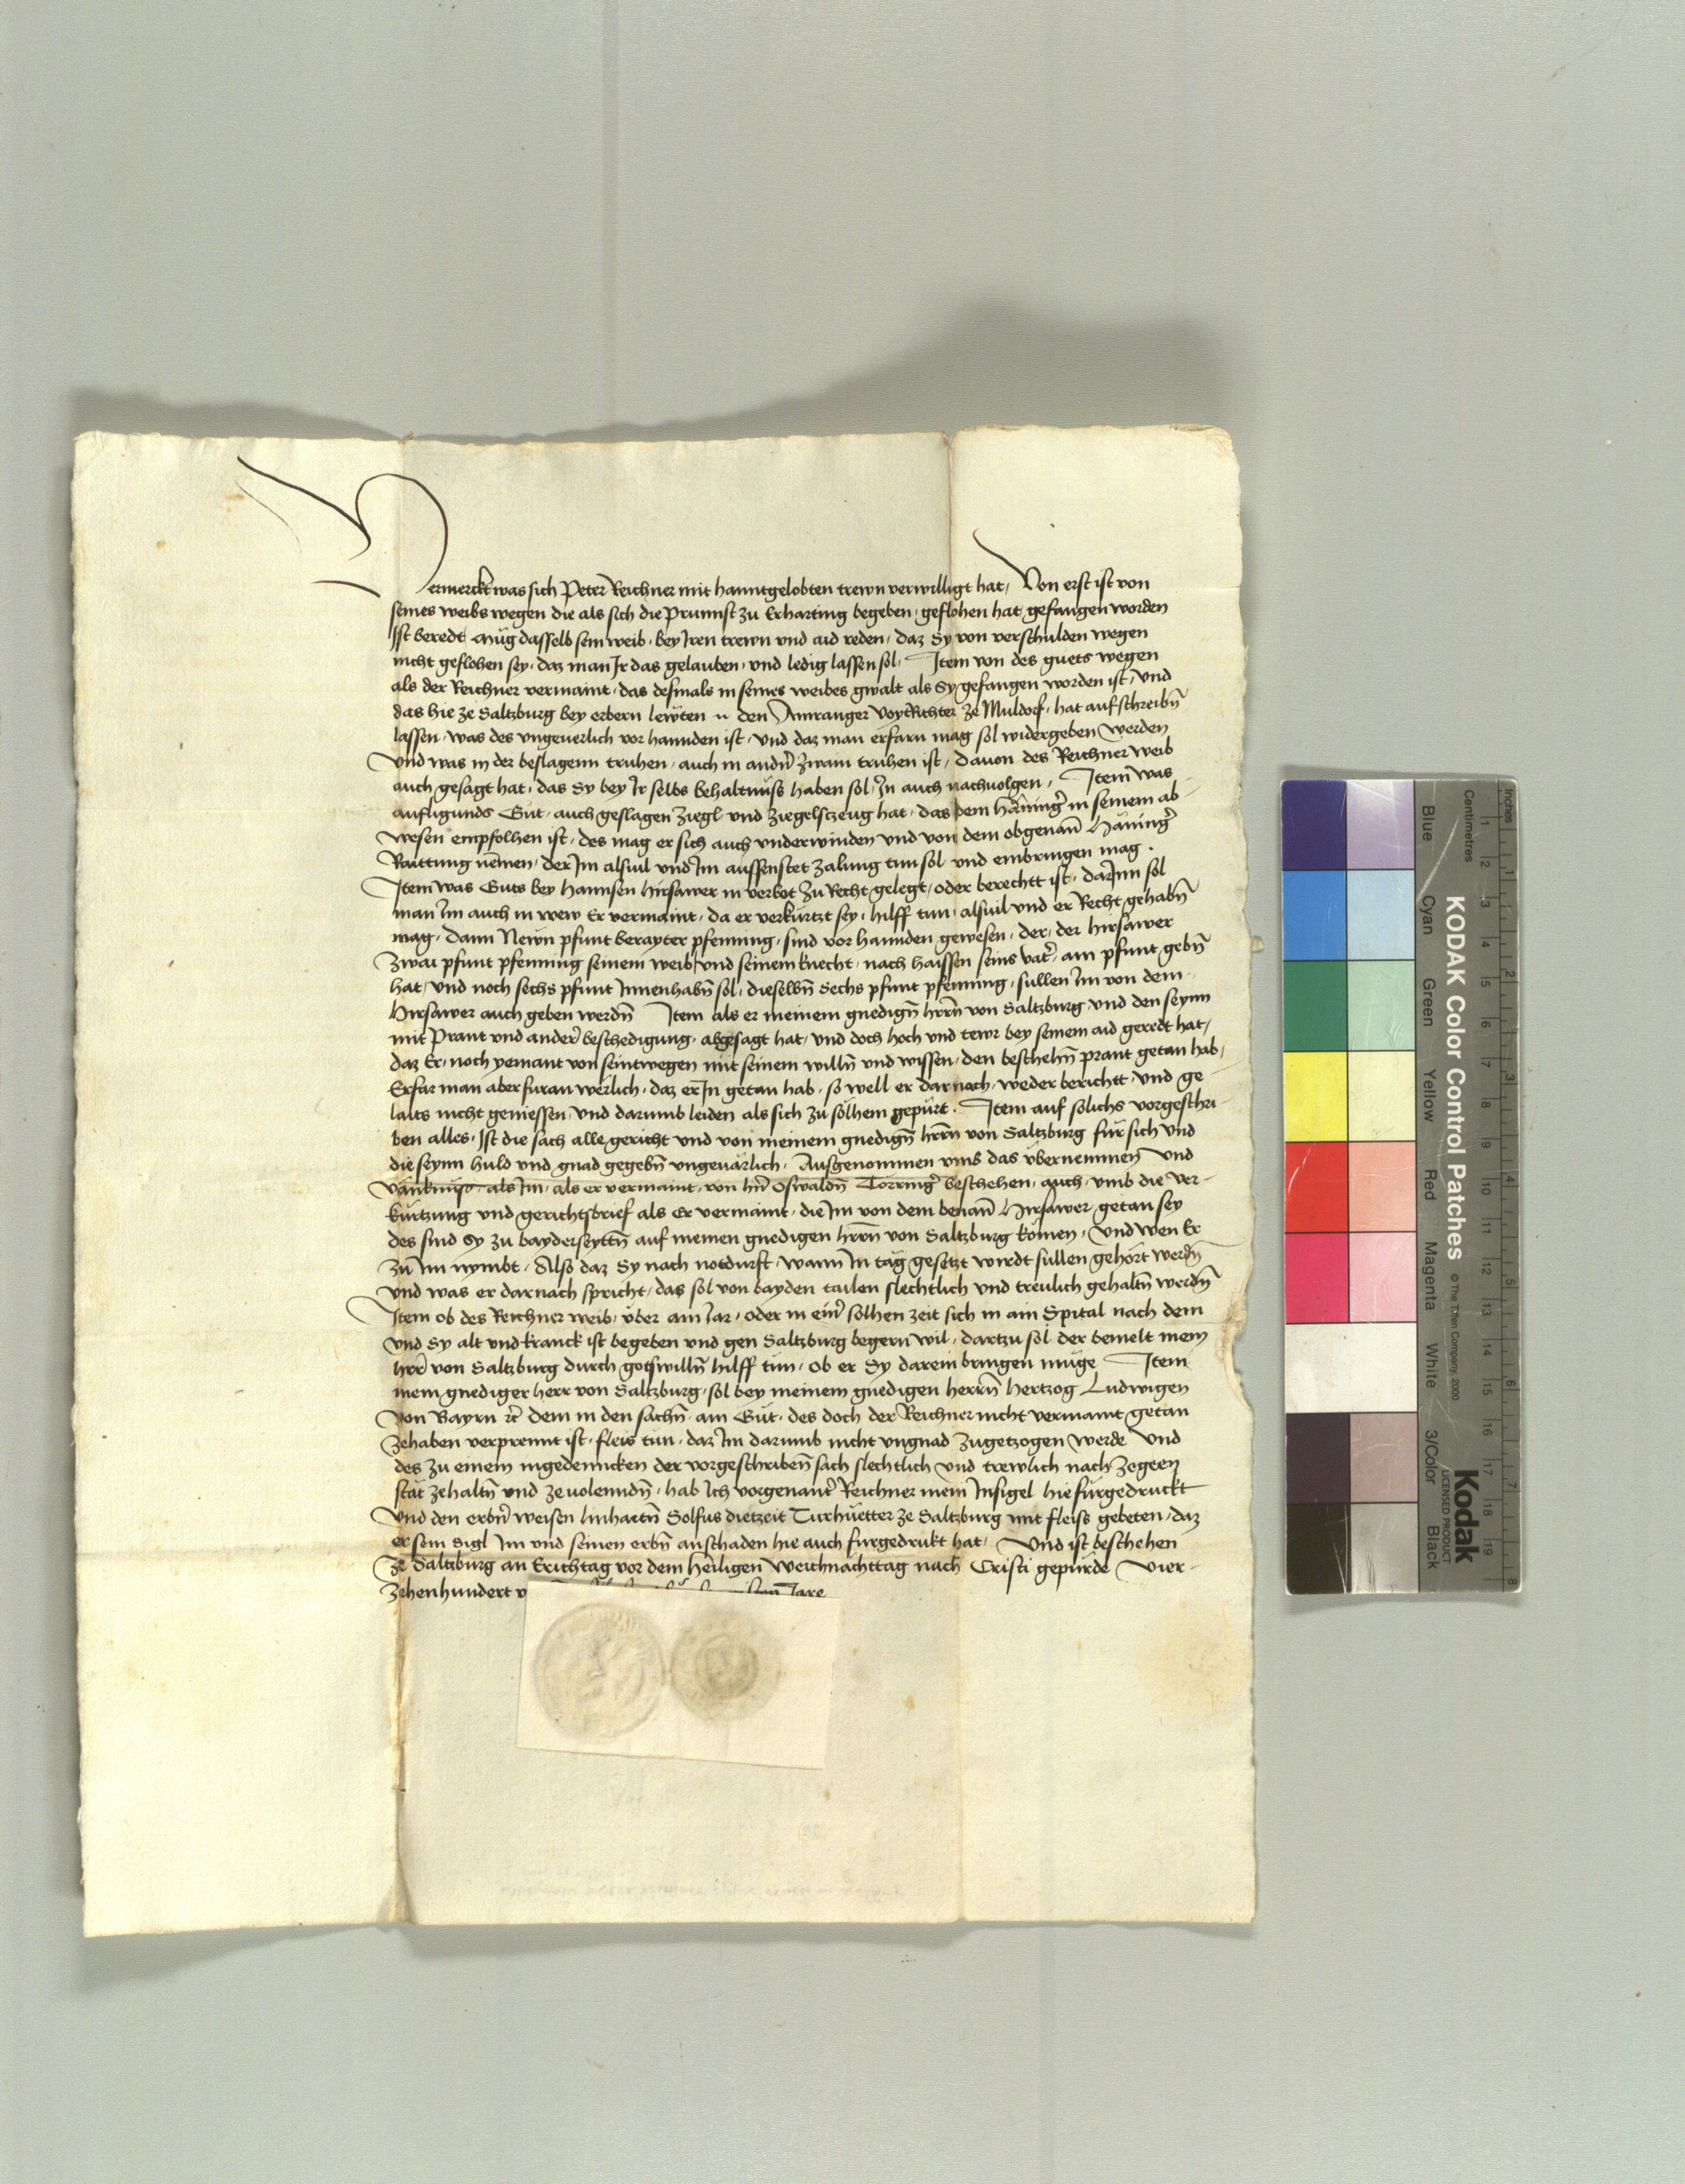 Vermerckt was sich Peter Reichner mit hanntgelobten trewn verwilligt hat, Von erst ist von
seines weibs wegen die als sich die Prunnst zu Erharting begeben, geflohen hat, gefangen worden
Ist beredt müg dasselb sein weib, bey Iren trewn und aid reden, daz Sy von verschulden wegen
nicht geflohen sey, daz man Ir das gelauben, und ledig lassen sol, Item von des guets wegen
als der Reichner vermaint, das desmals in seines weibes gwalt als Sy gefangen worden ist, und
das hie ze Saltzburg bey erbern lewten den Anranger Voytrichter ze Muldorf, hat aufschreibn̄
lassen, was des ungeuerlich vor hannden ist, und daz man erfarn mag sol widergeben werden
Und was in der beslagenn truhen, auch in andn̄ zwain truhen ist, dauon des Reichner weib
auch gesagt hat, das Sy bey Ir selbs behaltnüss haben sol, In auch nachuolgen, Item was
aufligunds Gut, auch geslagen ziegl und ziegelstzeug hat, das dem Häning̛ in seinem ab-
wesen empfolhen ist, des mag er sich auch underwinden und von dem obgenan̄ Häning̛
Raittung nemen, der Im alsuil und Im aussenstet zalung tun sol und einbringen mag.
Item was Guts bey Hannsen Hirsawer in verbot zu Recht gelegt, oder berechtt ist, darInn sol
man Im auch in wew Er vermaint, da er verkürtzt sey, hilff tun, alsuil und er Recht gehabn̄
mag, dann Newn pfunt berayter pfenning, sind vor hannden gewesen, der, der Hirsawer
zwai pfunt pfenning seinem weib, und seinem knecht, nach haissen seins vat̛, ain pfunt gebn̄
hat, und noch sechs pfunt Innenhabn̄ sol, dieselbn̄ Sechs pfunt pfenning, sullen Im von dem
Hirsawer auch geben werdn̄ Item als er meinem gnedign̄ hrrn̄ von Saltzburg und den seynn
mit Prant und ander̛ beschedigung, abgesagt hat, und doch hoch und tewr bey seinem aid geredt hat,
daz Er, noch yemant von seintwegen mit seinem willn̄ und wissen, den beschehn̄ prant getan hab,
Erfür man aber furan werlich, daz er In getan hab, so well er darnach, weder berichtt, und ge-
laits nicht geniessen, und darumb leiden als sich zu solhem gepürt. Item auf solichs vorgeschri-
ben alles, Ist die sach alle, gericht und von meinem gnedign̄ hrrn̄ von Saltzburg für sich und
die seynn huld und gnad gegebn̄ ungeuärlich, Ausgenommen umb das übernemmen und
vänknüss als Im, als er vermaint, von hn̄ Oswaldn̄ Törring̛ beschehen, auch, umb die Ver-
kürtzung und gerichtsbrief als er vermaint, die Im von dem benan̄ Hirsawer, getan sey
des sind Sy zu bayderseyttn̄ auf meinen gnedigen hrrn̄ von Saltzburg komen, Und wen Er
zu Im nymbt, Also daz Sy nach notdurft, wann In täg gesetzt wirdt süllen gehört werdn̄
und was er darnach spricht, das sol von bayden tailen slechtlich und treulich gehaltn̄ werdn̄
Item ob des Reichner weib, über ain Iar, oder in ein̛ solhen zeit sich in ain Spital nach dem
und Sy alt und kranck ist begeben und gen Saltzburg begern wil, dartzu sol der bemelt mein
hrr̄ von Saltzburg durch gotswilln̄ hilff tun, ob er Sy darein bringen muge Item
mein gnediger herr von Saltzburg, sol bey meinem gnedigen herrn̄ hertzog Ludwigen
von Bayrn rc̄ dem in den sachn̄ ain Güt, des doch der Reichner nicht vermaint getan
zehaben verprennt ist, fleis tun, daz Im darumb nicht ungnad zugetzogen werde Und
des zu einem ingedenncken der vorgeschribn̄ sach slechtlich und trewlich nach zegeen
stät zehaltn̄ und ze uolenndn̄, hab Ich vorgenant̛ Reichner mein Insigel hiefürgedruckt
Und den erbn̄ weisen linhartn̄ Solfus dietzeit Turhüetter ze Saltzburg mit fleiss gebeten, daz
er sein Sigl Im und seinen erbn̄ anschaden hie auch furgedrukt hat, Und ist beschehen
ze Saltzburg an Erichtag vor dem heiligen Weichnachttag nach Cristi gepürde Vier-
zehenhundert Jare
KODAK Color Control Patches
© The Tiffen Company, 2000
Kodak
LICENSED PRODUCT
Inches 1 2 3 4 5 6 7 8
Centimetres 1 2 3 4 5 6 7 8 9 10 11 12 13 14 15 16 17 18 19
Blue Cyan Green Yellow Red Magenta White 3/Color Black